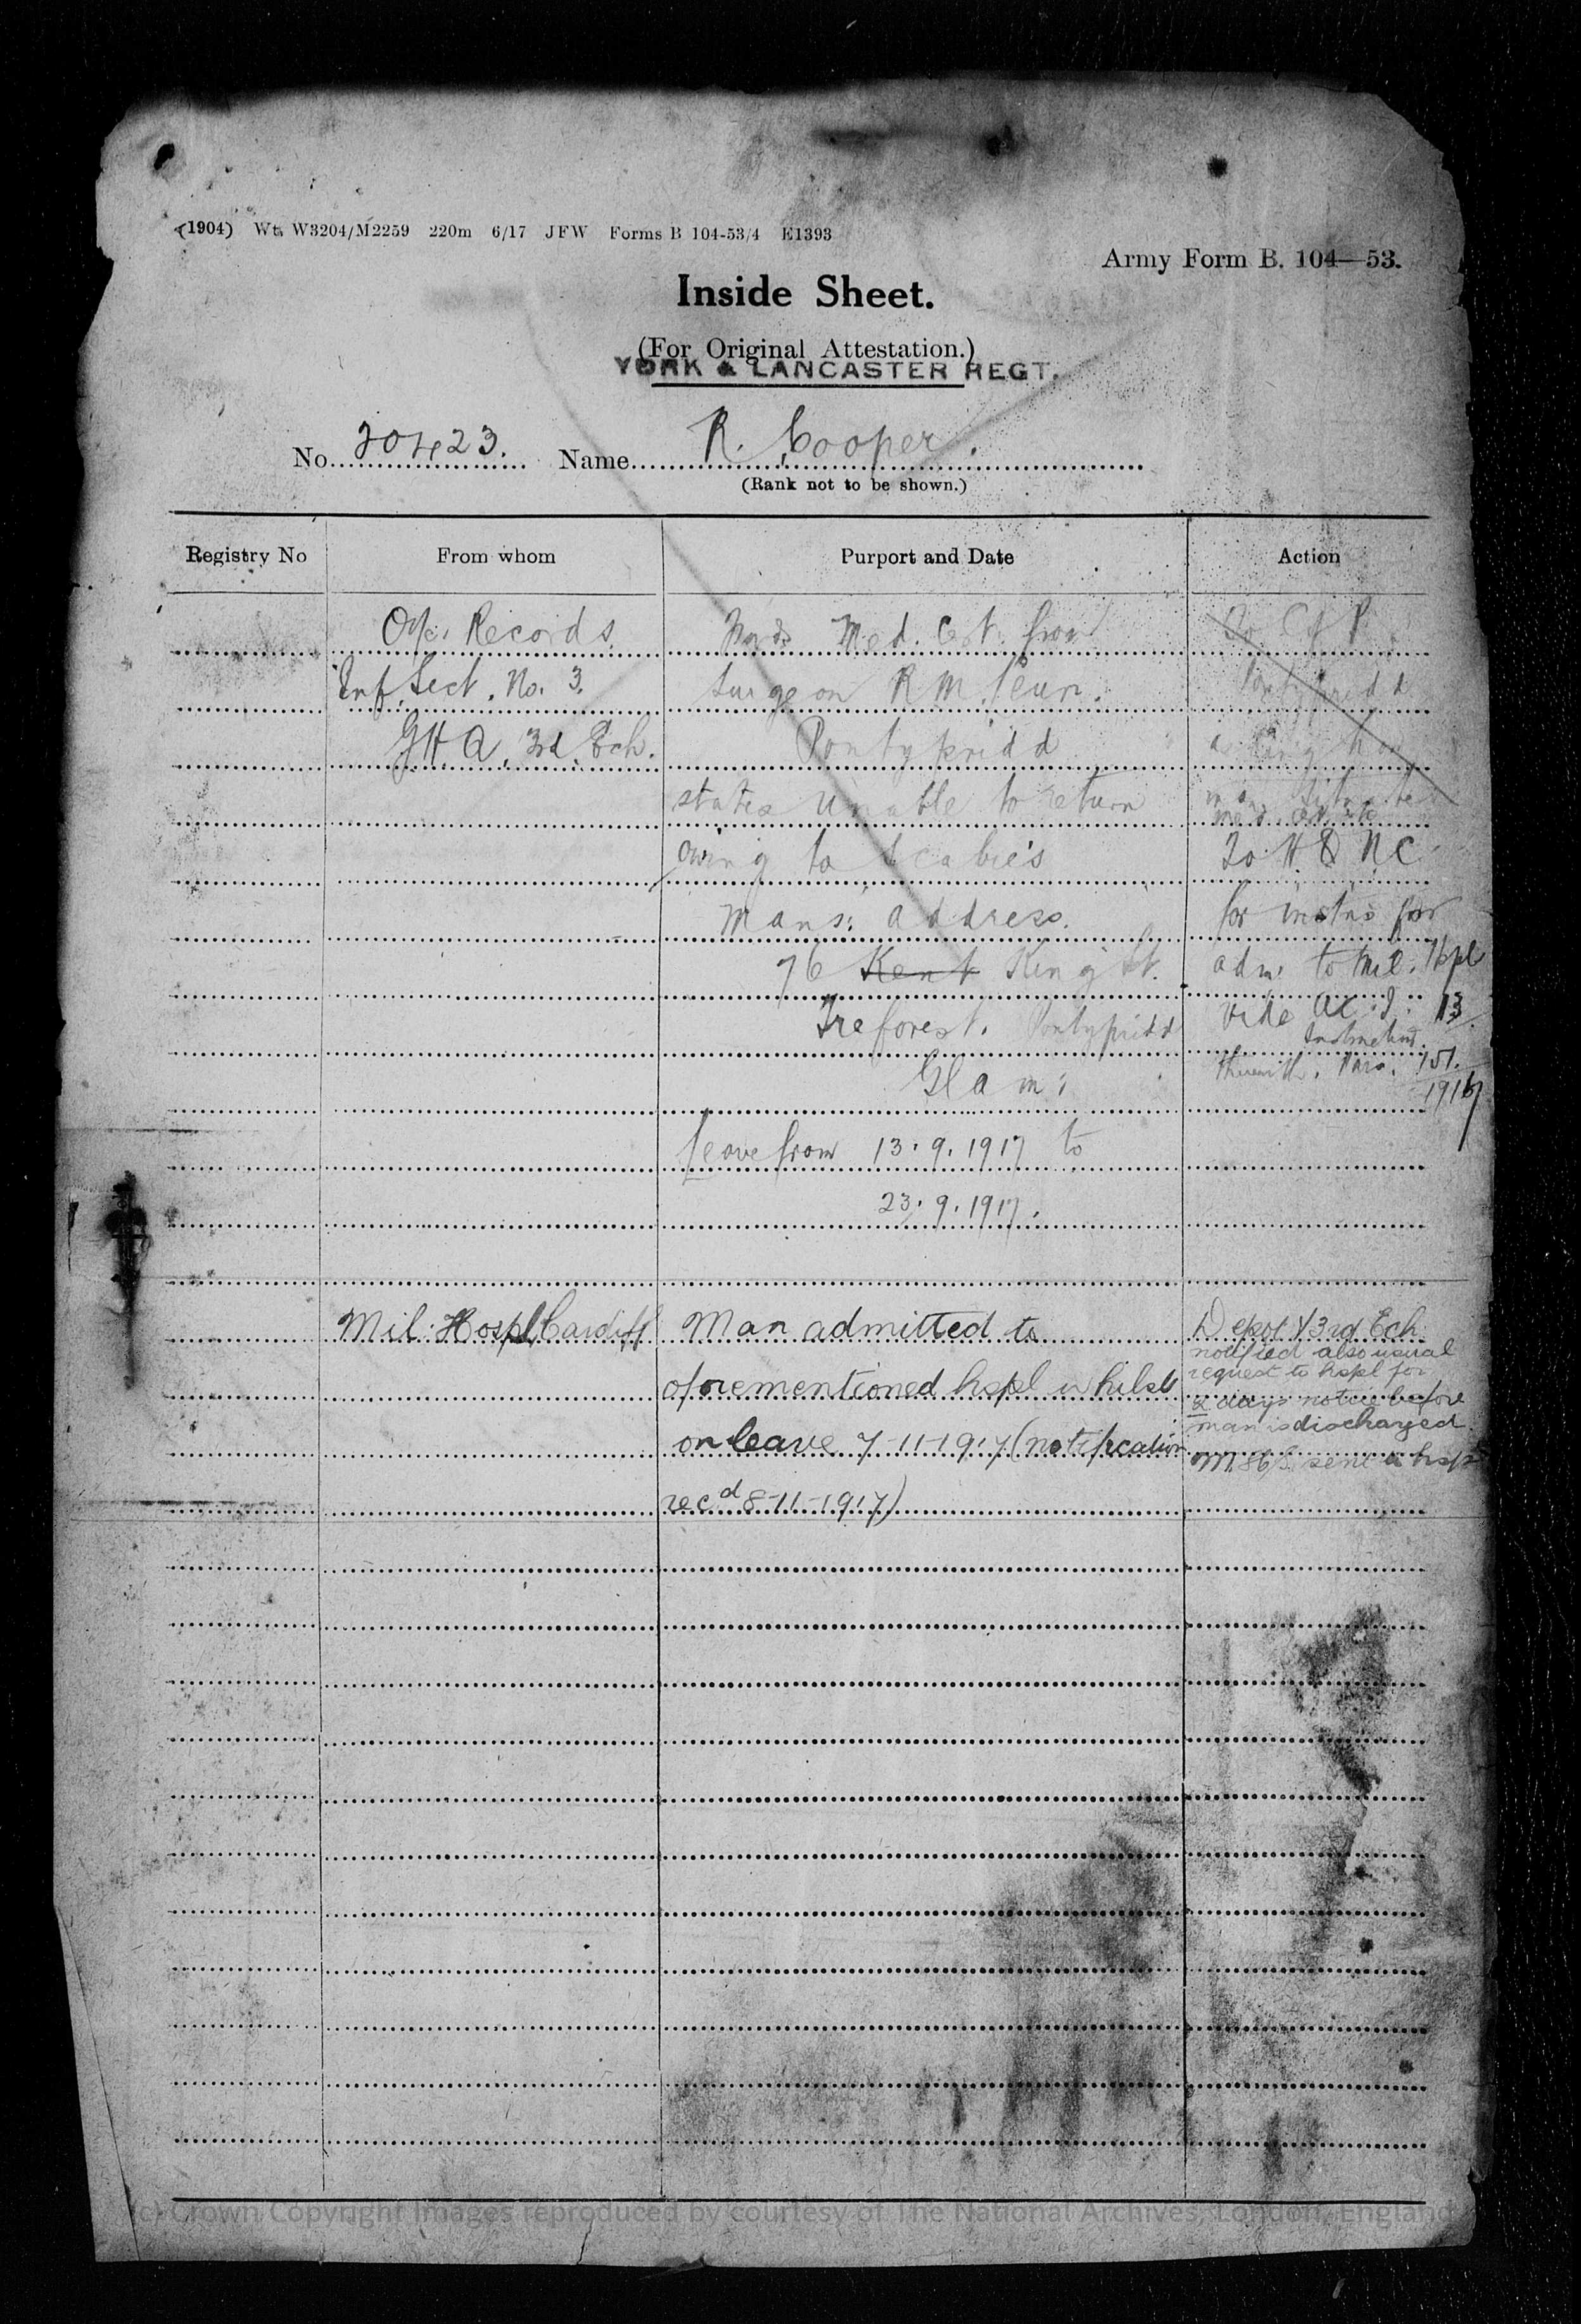 (1904) Wt. W3204/M2259 220m 6/17 JFW Forms B 104-53/4 E1393
Army Form B. 104—53.
Inside Sheet.
(For Original Attestation.)
YORK & LANCASTER REGT.
No. 20423. Name R. Cooper.
(Rank not to be shown.)
Registry No From whom Purport and Date Action
O/c. Records. Med. Cert. from
Inf. Sect. No. 3. Surgeon R M
GHQ. 3rd Ech. Pontypridd
states unable to return
owing to scabies
mans: address.
76 Kent King St.
Treforest. Pontypridd
Glam:
leave from 13.9.1917 to
23.9.1917.
Pontypridd
for instns for
adm. to Mil. Hspl
vide 13
Instructions
151.
Mil. Hospl, Cardiff
Man admitted to
aforementioned hspl whilst
on leave 7-11-1917 (notification
recd 8-11-1917)
Depot & 3rd Ech
notified also usual
request to hspl for
2 days notice before
man is discharged
sent hspl
(c) Crown Copyright Images reproduced by courtesy of The National Archives, London, England